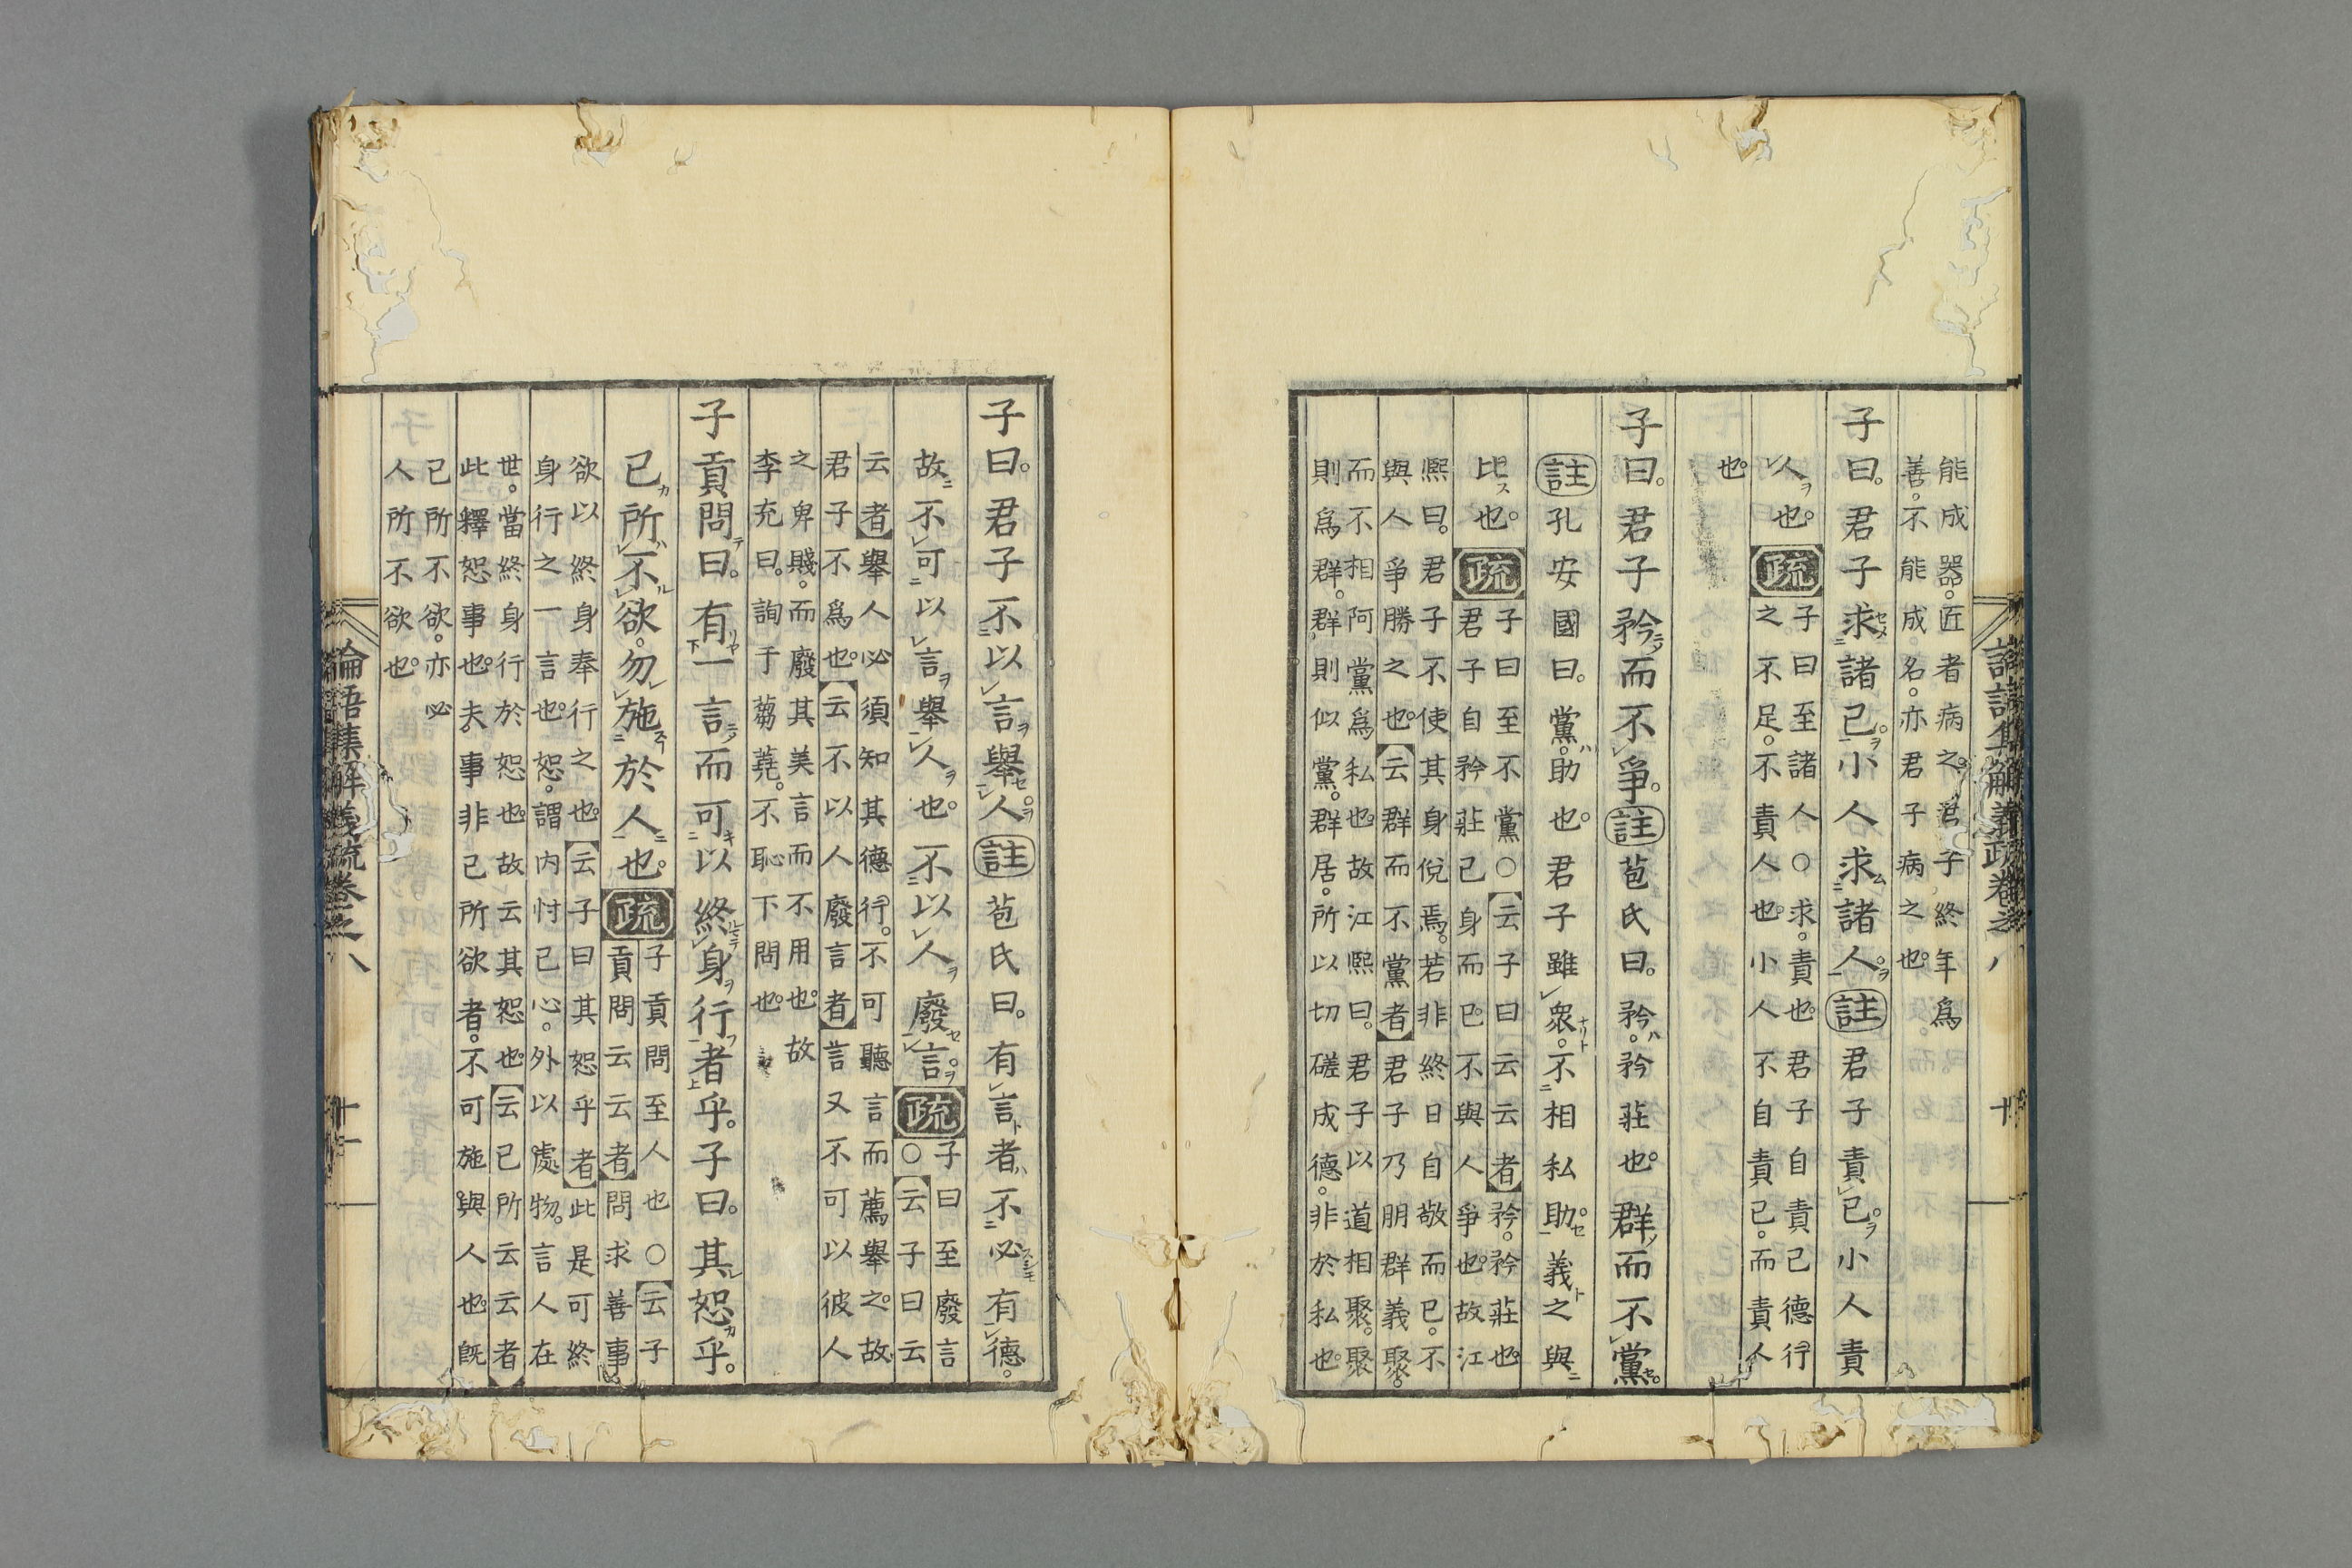 能成器。匠者病之。君子終年爲
善。不能成名。亦君子病之也。
子曰。君子求諸己小人求諸人註君子責己小人責
人也。疏子曰至諸人○求。責也。君子自責己德行
之不足。不責人也。小人不自責己。而責人
也。
子曰。君子矜而不爭。註苞氏曰。矜。矜莊也。群而不黨
註孔安國曰。黨。助也。君子雖衆。不相私助義之與
比也。疏子曰至不黨○云子曰云云者矜。矜莊也
君子自矜莊己身而已。不與人爭也。故江
熙曰。君子不使其身侻焉。若非終日自敬而已。不
與人爭勝之也。云群而不黨者君子乃朋群義聚。
而不相阿黨爲私也。故江熙曰。君子以道相聚。聚
則爲群。群則似黨。群居。所以切磋成德。非於私也。
子曰。君子不以言舉人註苞氏曰。有言者不必有德。
故不可以言舉人也。不以人廢言疏子曰至廢言
○云子曰云
云者舉人必須知其德行。不可聽言而薦舉之。故
君子不爲也。云不以人廢言者言又不可以彼人
之卑賤。而廢其美言而不用也。故
李充曰。詢于蒭蕘。不恥下問也。
子貢問曰。有一言而可以終身行者乎。子曰。其恕乎。
己所不欲。勿施於人也。疏子貢問至人也○云子
貢問云云者問求善事
欲以終身奉行之也云子曰其恕乎者此是可終
身行之一言也。恕。謂内忖己心。外以處物。言人在
世。當終身行於恕也。故云其恕也。云己所云云者
此釋恕事也。夫。事非己所欲者。不可施與人也。既
己所不欲。亦必
人所不欲也。
論語集解義疏卷之八
十一
論語集解義疏卷之八
十